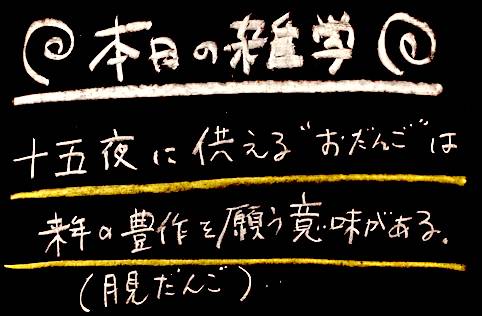 本日の雑学
十五夜に供える“おだんご”は
来年の豊作を願う意味がある.
(月見だんご)..